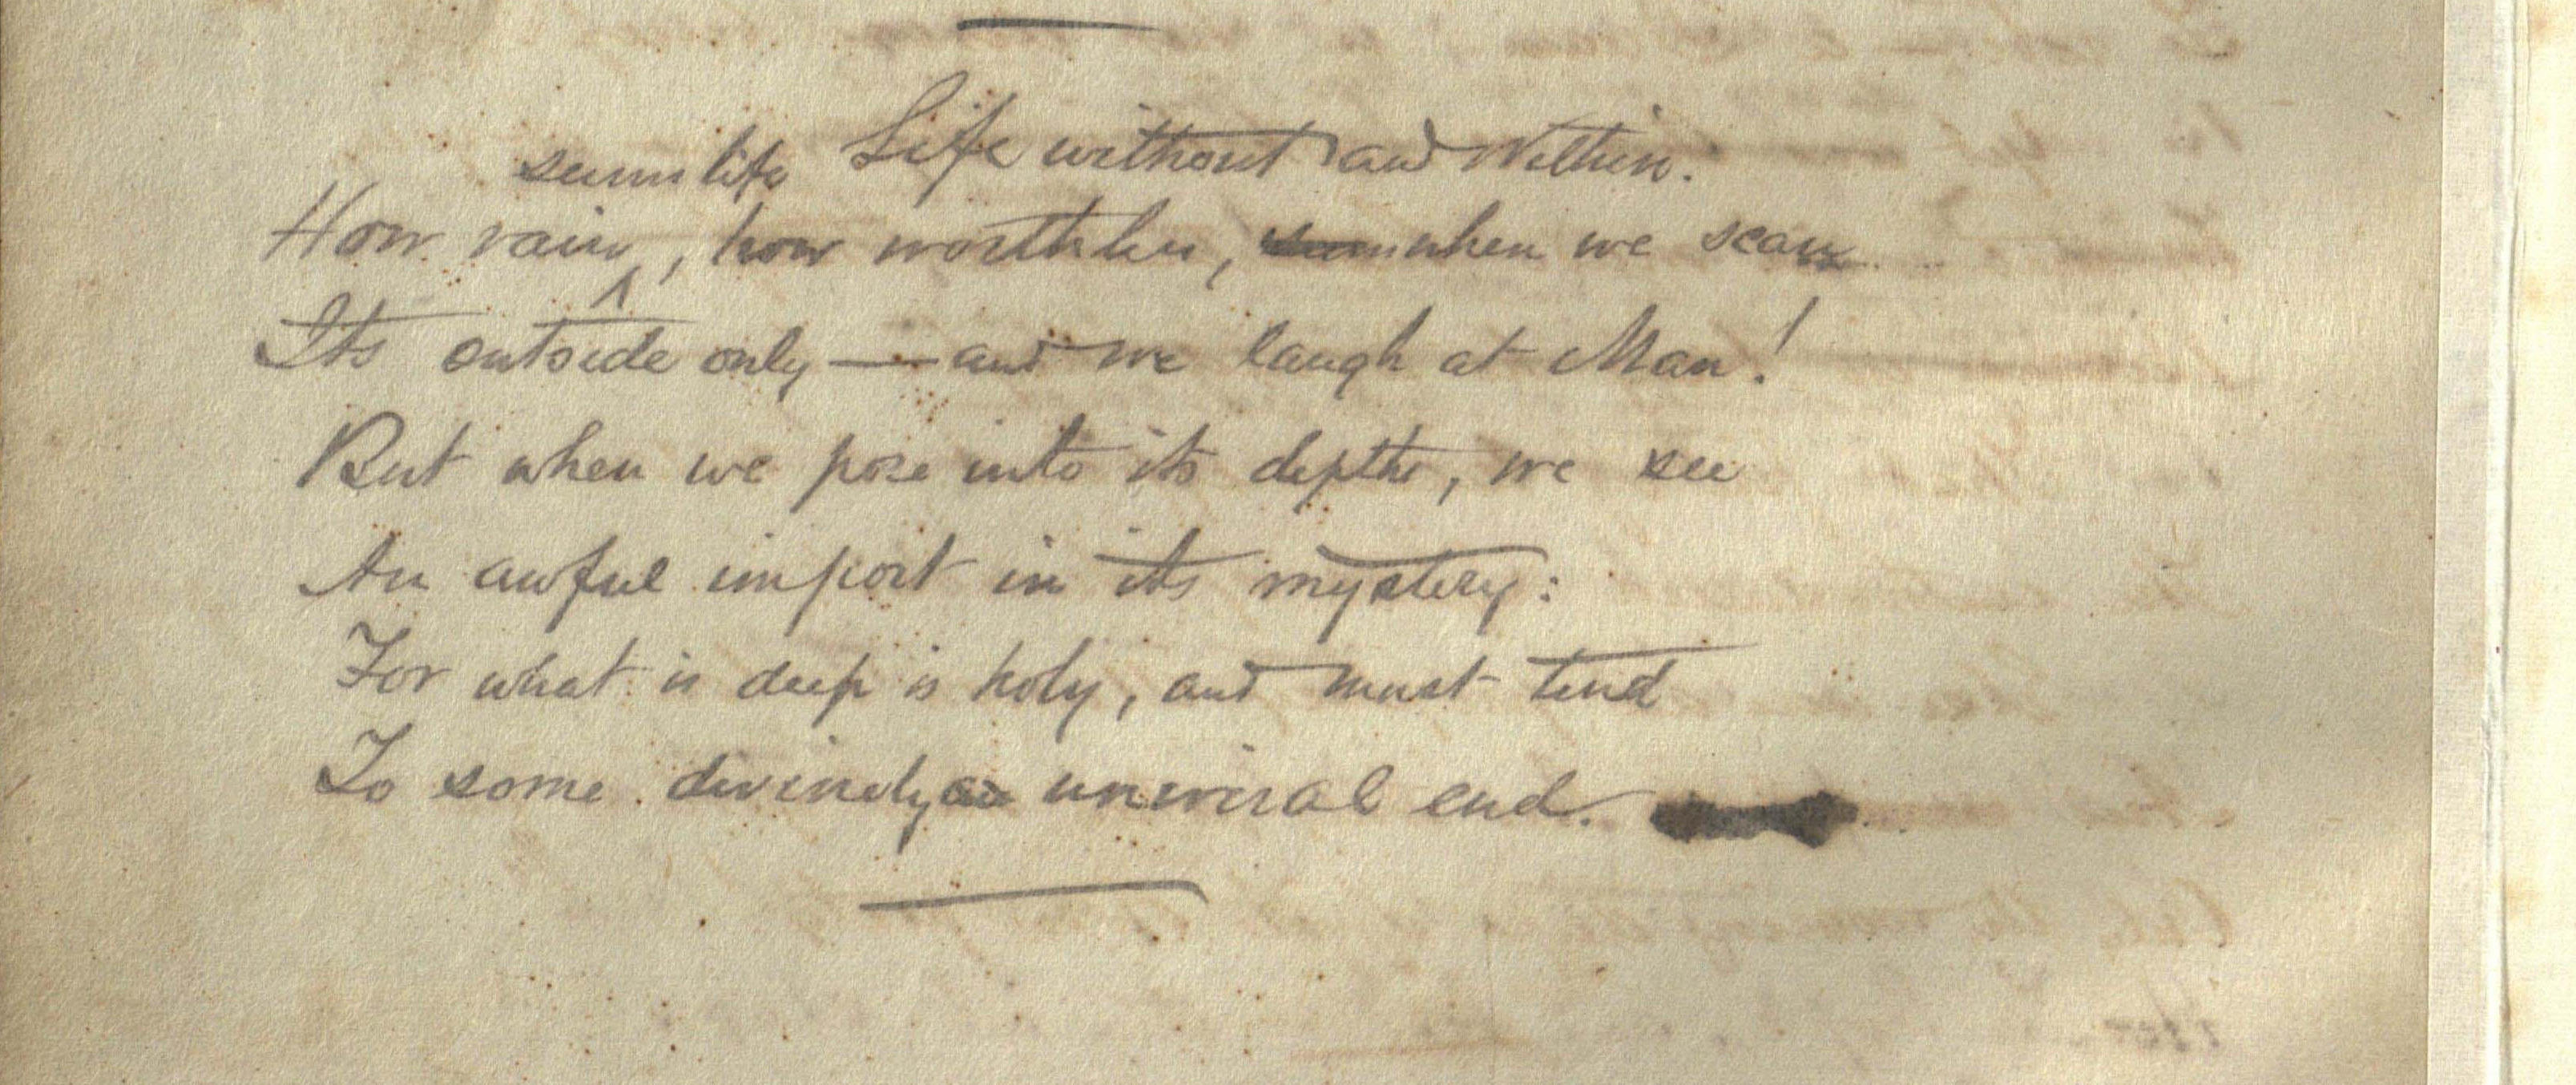 Life without and Within.
seems life
How vain, how worthless, when we scan
Its outside only — and we laugh at Man!
But when we pore into its depths, we see
An awful import in its mystery:
For what is deep is holy, and must tend
To some divinely universal end.